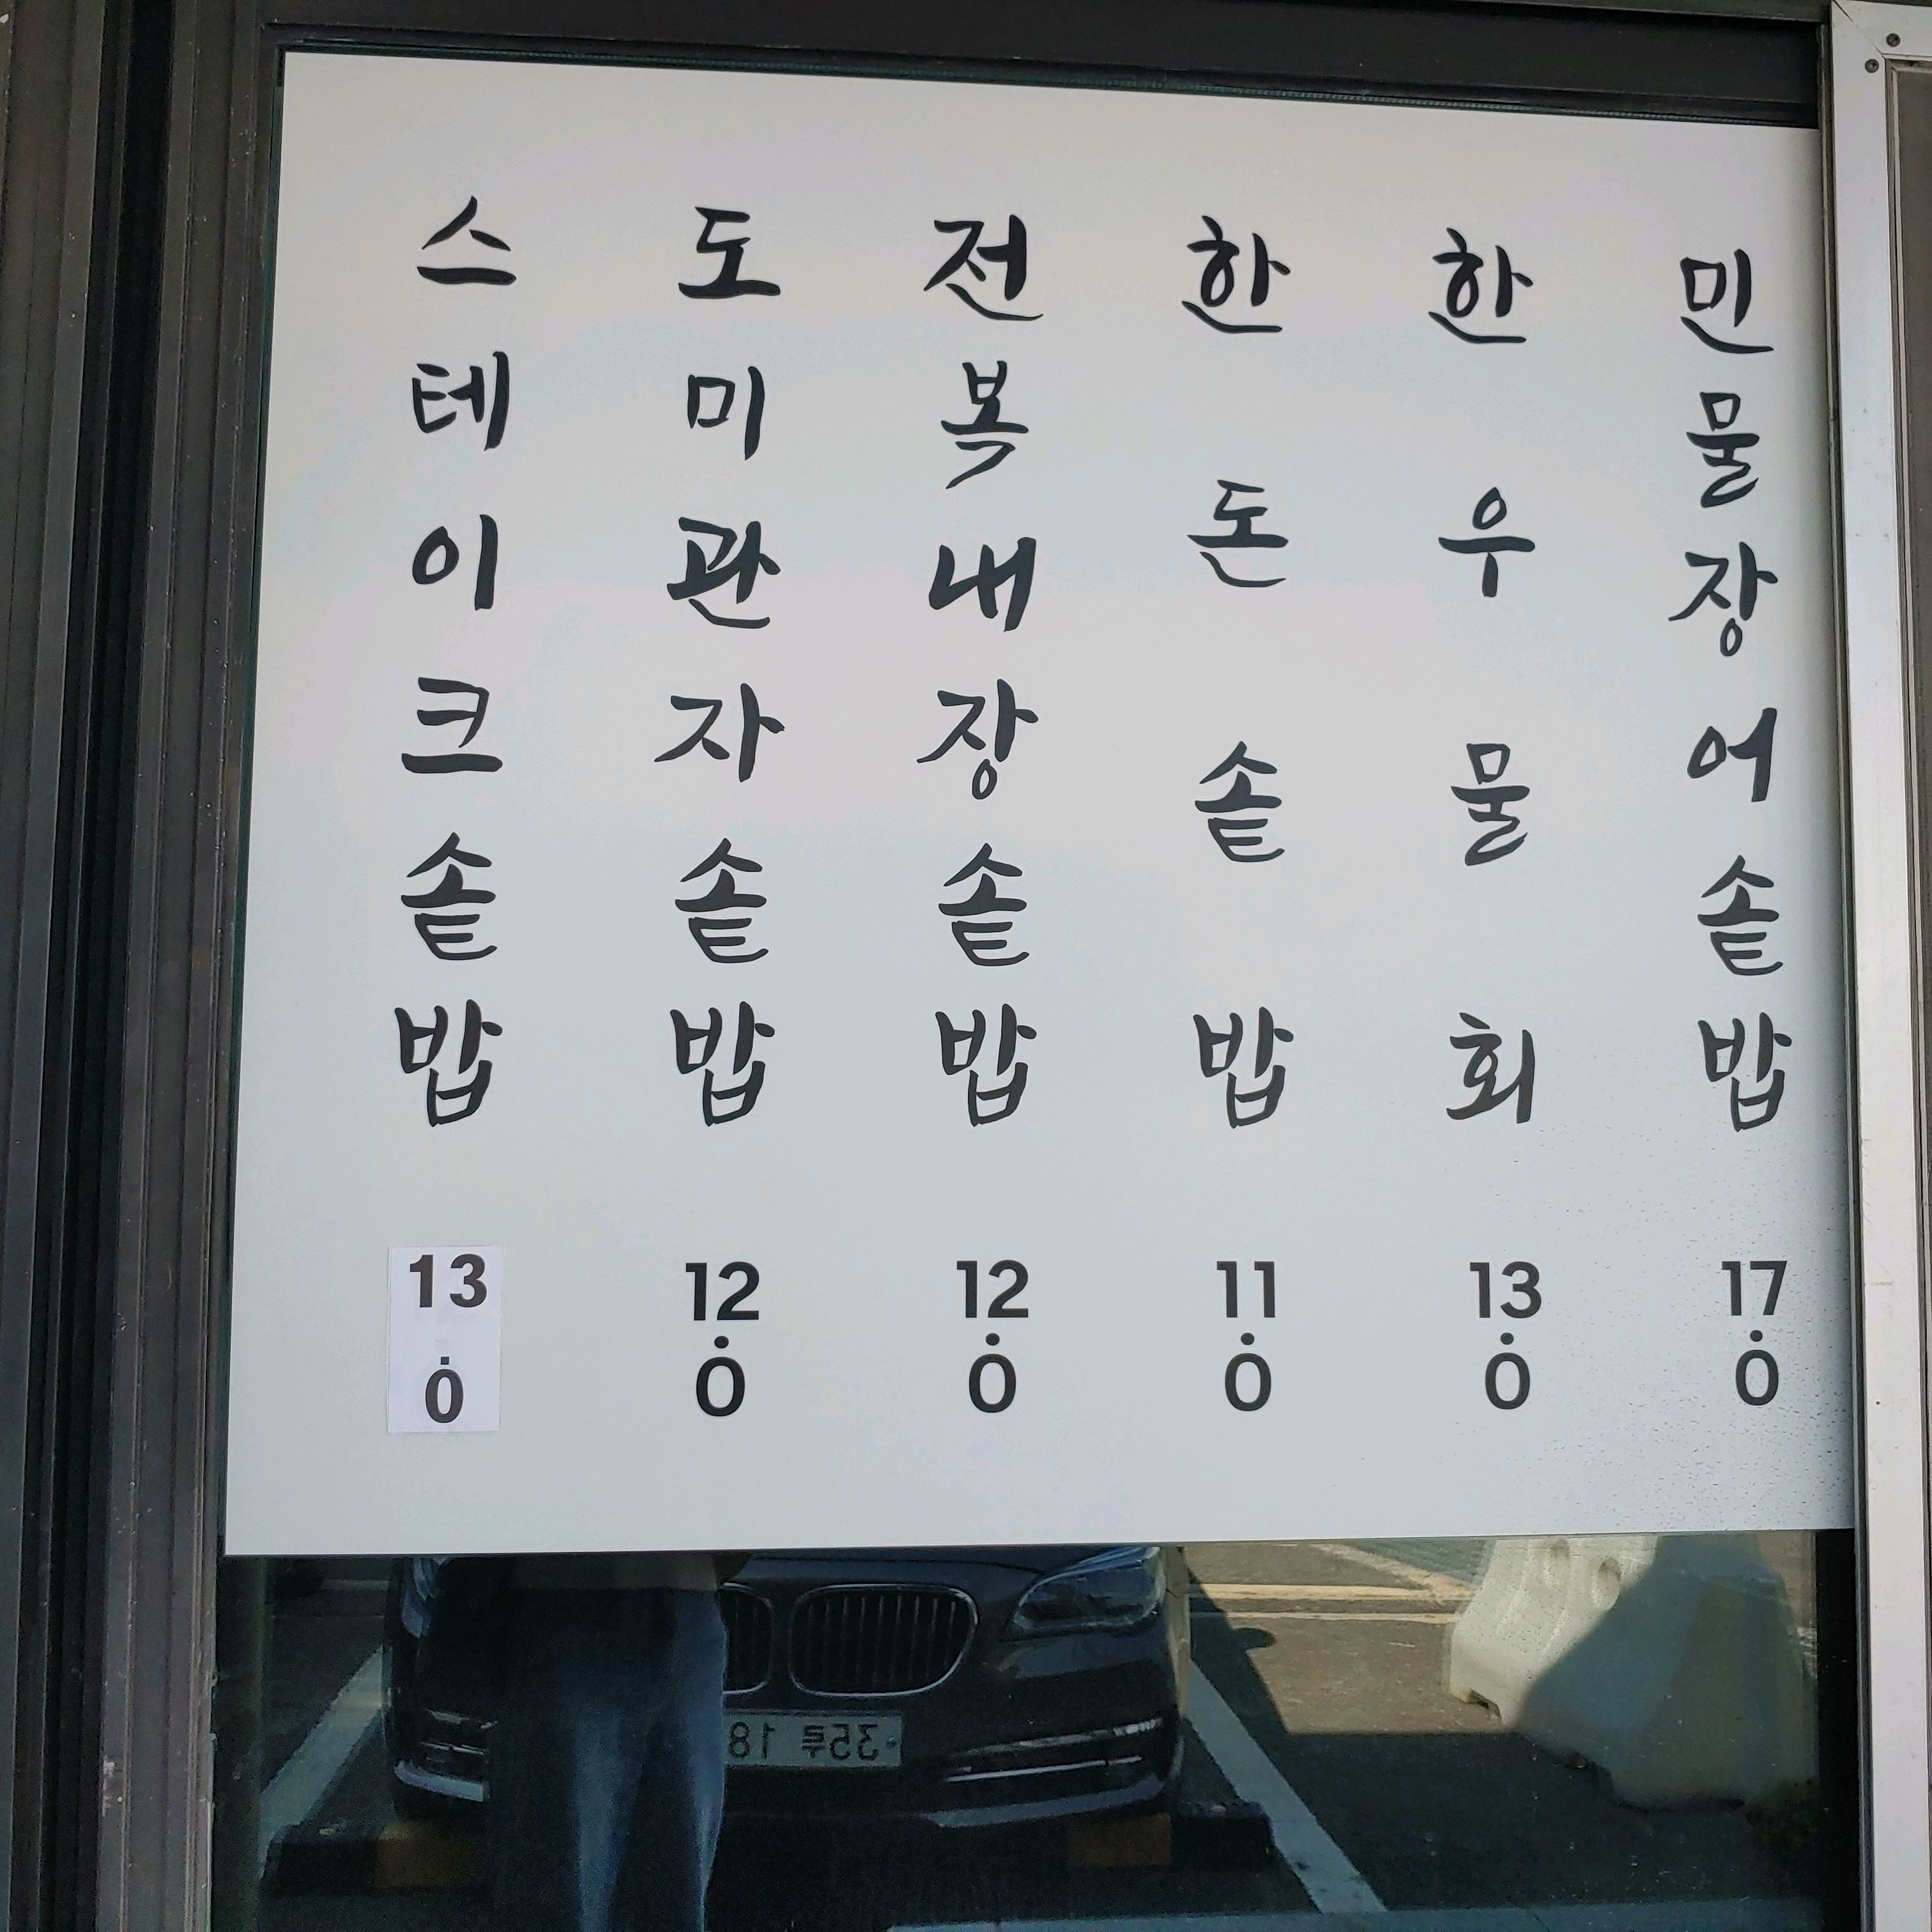 스테이크솥밥
13.0
도미관자솥밥
12.0
전복내장솥밥
12.0
한돈솥밥
11.0
한우물회
13.0
민물장어솥밥
17.0
35루 18